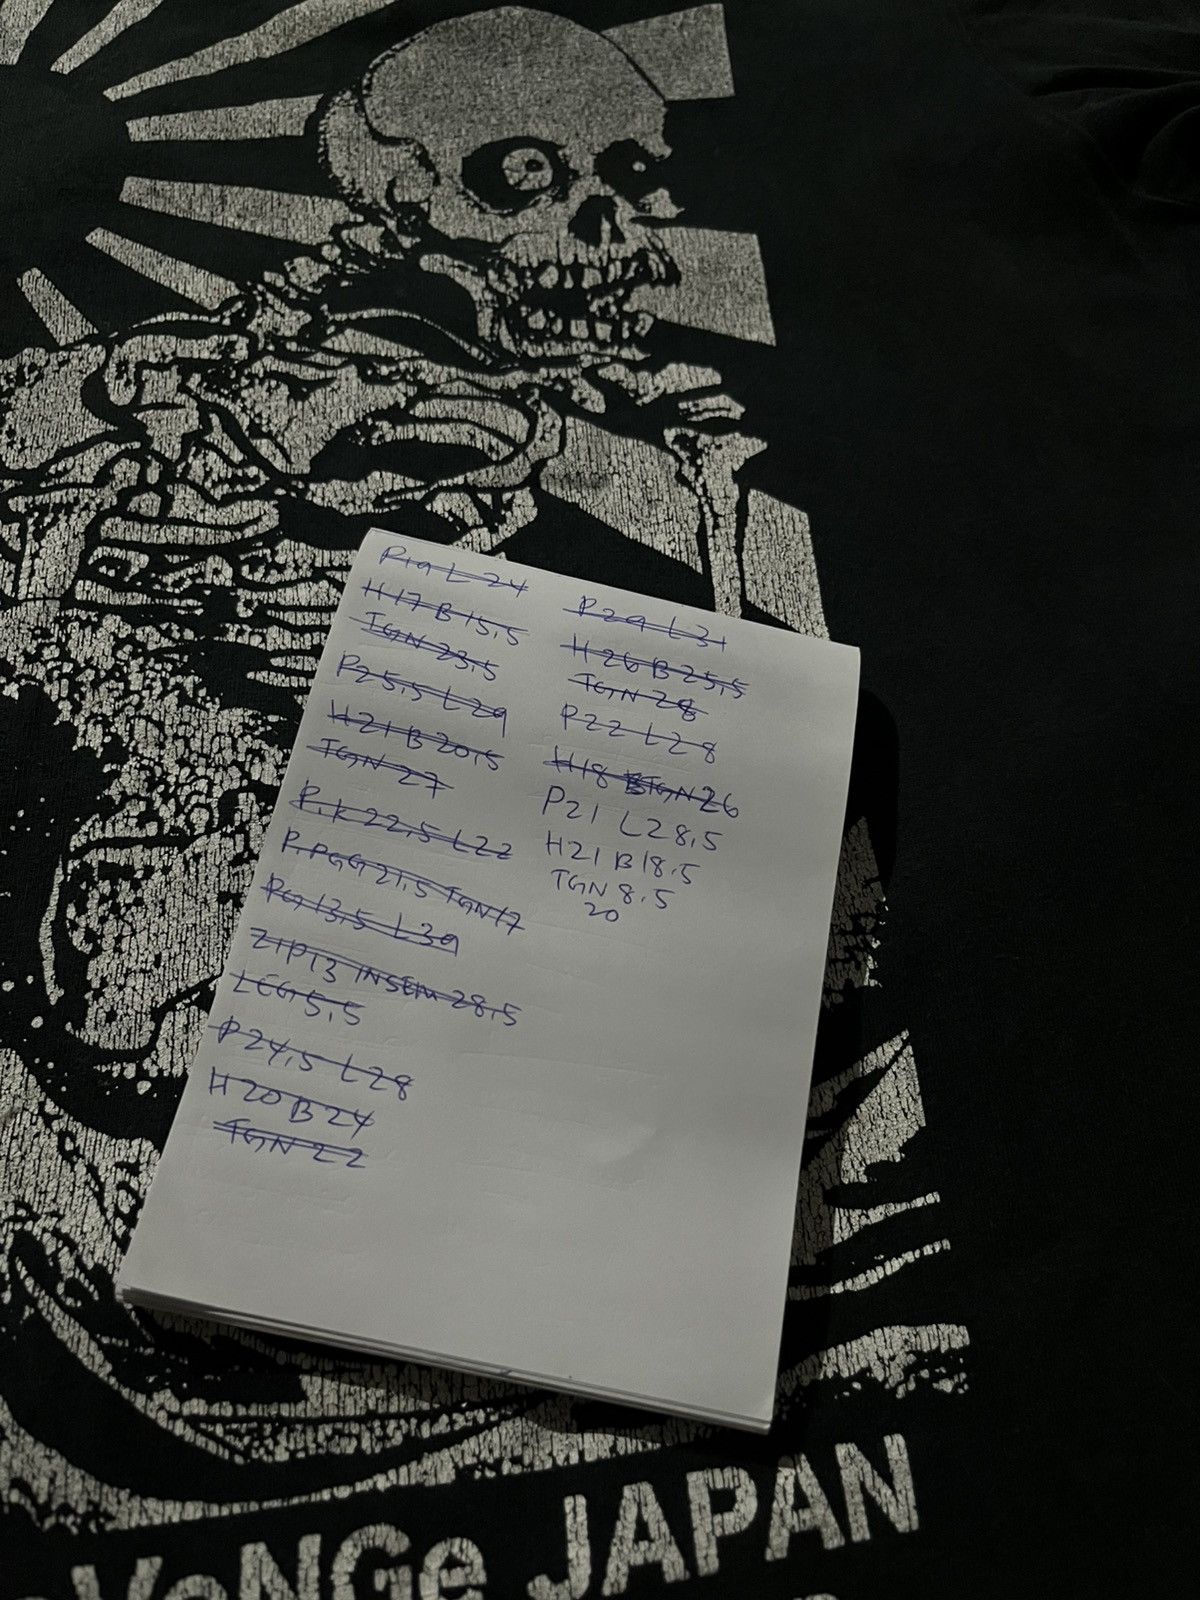 P19 L 24
H17 B 15,5
TGN 23,5
P25,5 L29
H21 B 20,5
TGN 27
P.K 22,5 L22
P.PGG 21,5 TGN 17
PG 13,5 L39
ZIP 13 INSEM 28,5
LEG 5,5
P 24,5 L28
H 20 B 24
TGN 22
P29 L31
H 26 B 25,5
TGN 28
P22 L28
H18 TGN 26
P21 L28,5
H21 B18,5
TGN 8,5
20
VeNGe JAPAN